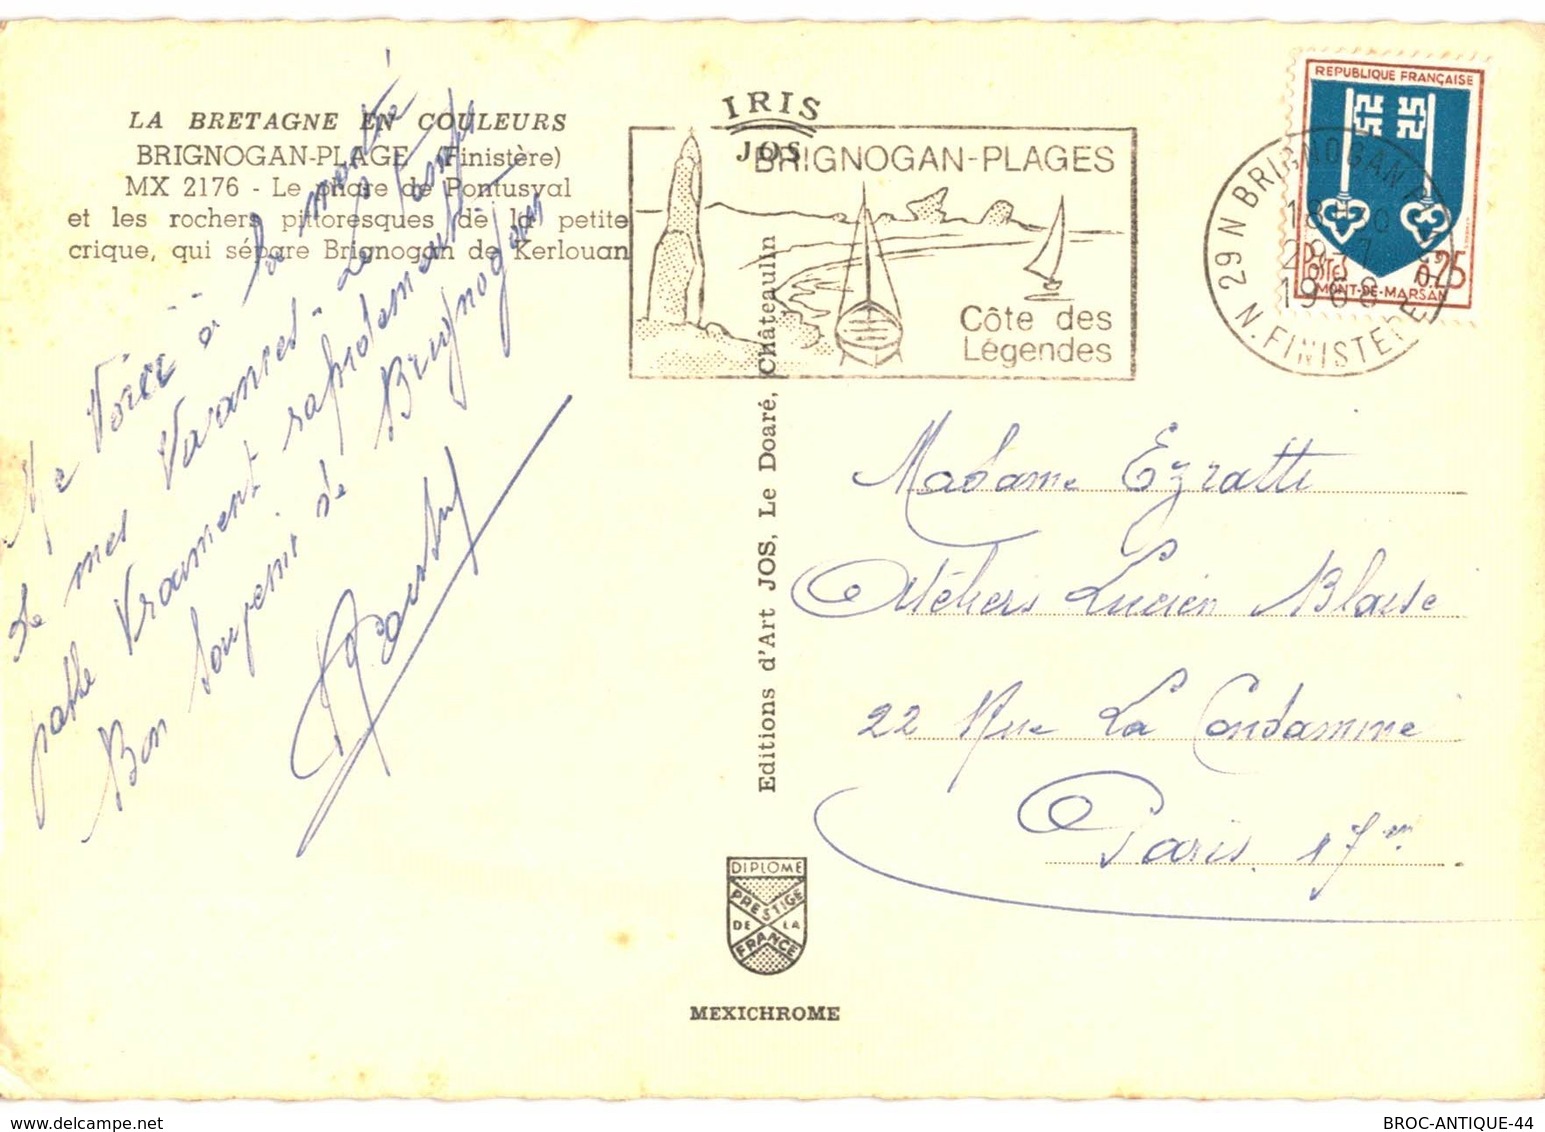 LA BRETAGNE EN COULEURS
BRIGNOGAN-PLAGE (Finistère)
MX 2176 - Le phare de Pontusval
et les rochers pittoresques de la petite
crique, qui sépare Brignogan de Kerlouan
Me Voici à la moitié
de mes Vacances. Le temps
passe Vraiment rapidement.
Bon Souvenir de Brignogan
IRIS
JOS
BRIGNOGAN-PLAGES
Côte des
Légendes
REPUBLIQUE FRANÇAISE
POSTES
0,25
MONT-DE-MARSAN
29 N BRIGNOGAN
1968
N. FINISTERE
Editions d'Art JOS, Le Doaré, Châteaulin
Madame Ezratti
Ateliers Lucien Blaise
22 Rue La Condamine
Paris 17em
DIPLOME
PRESTIGE
DE LA
FRANCE
MEXICHROME
delcampe.net
BROC-ANTIQUE-44